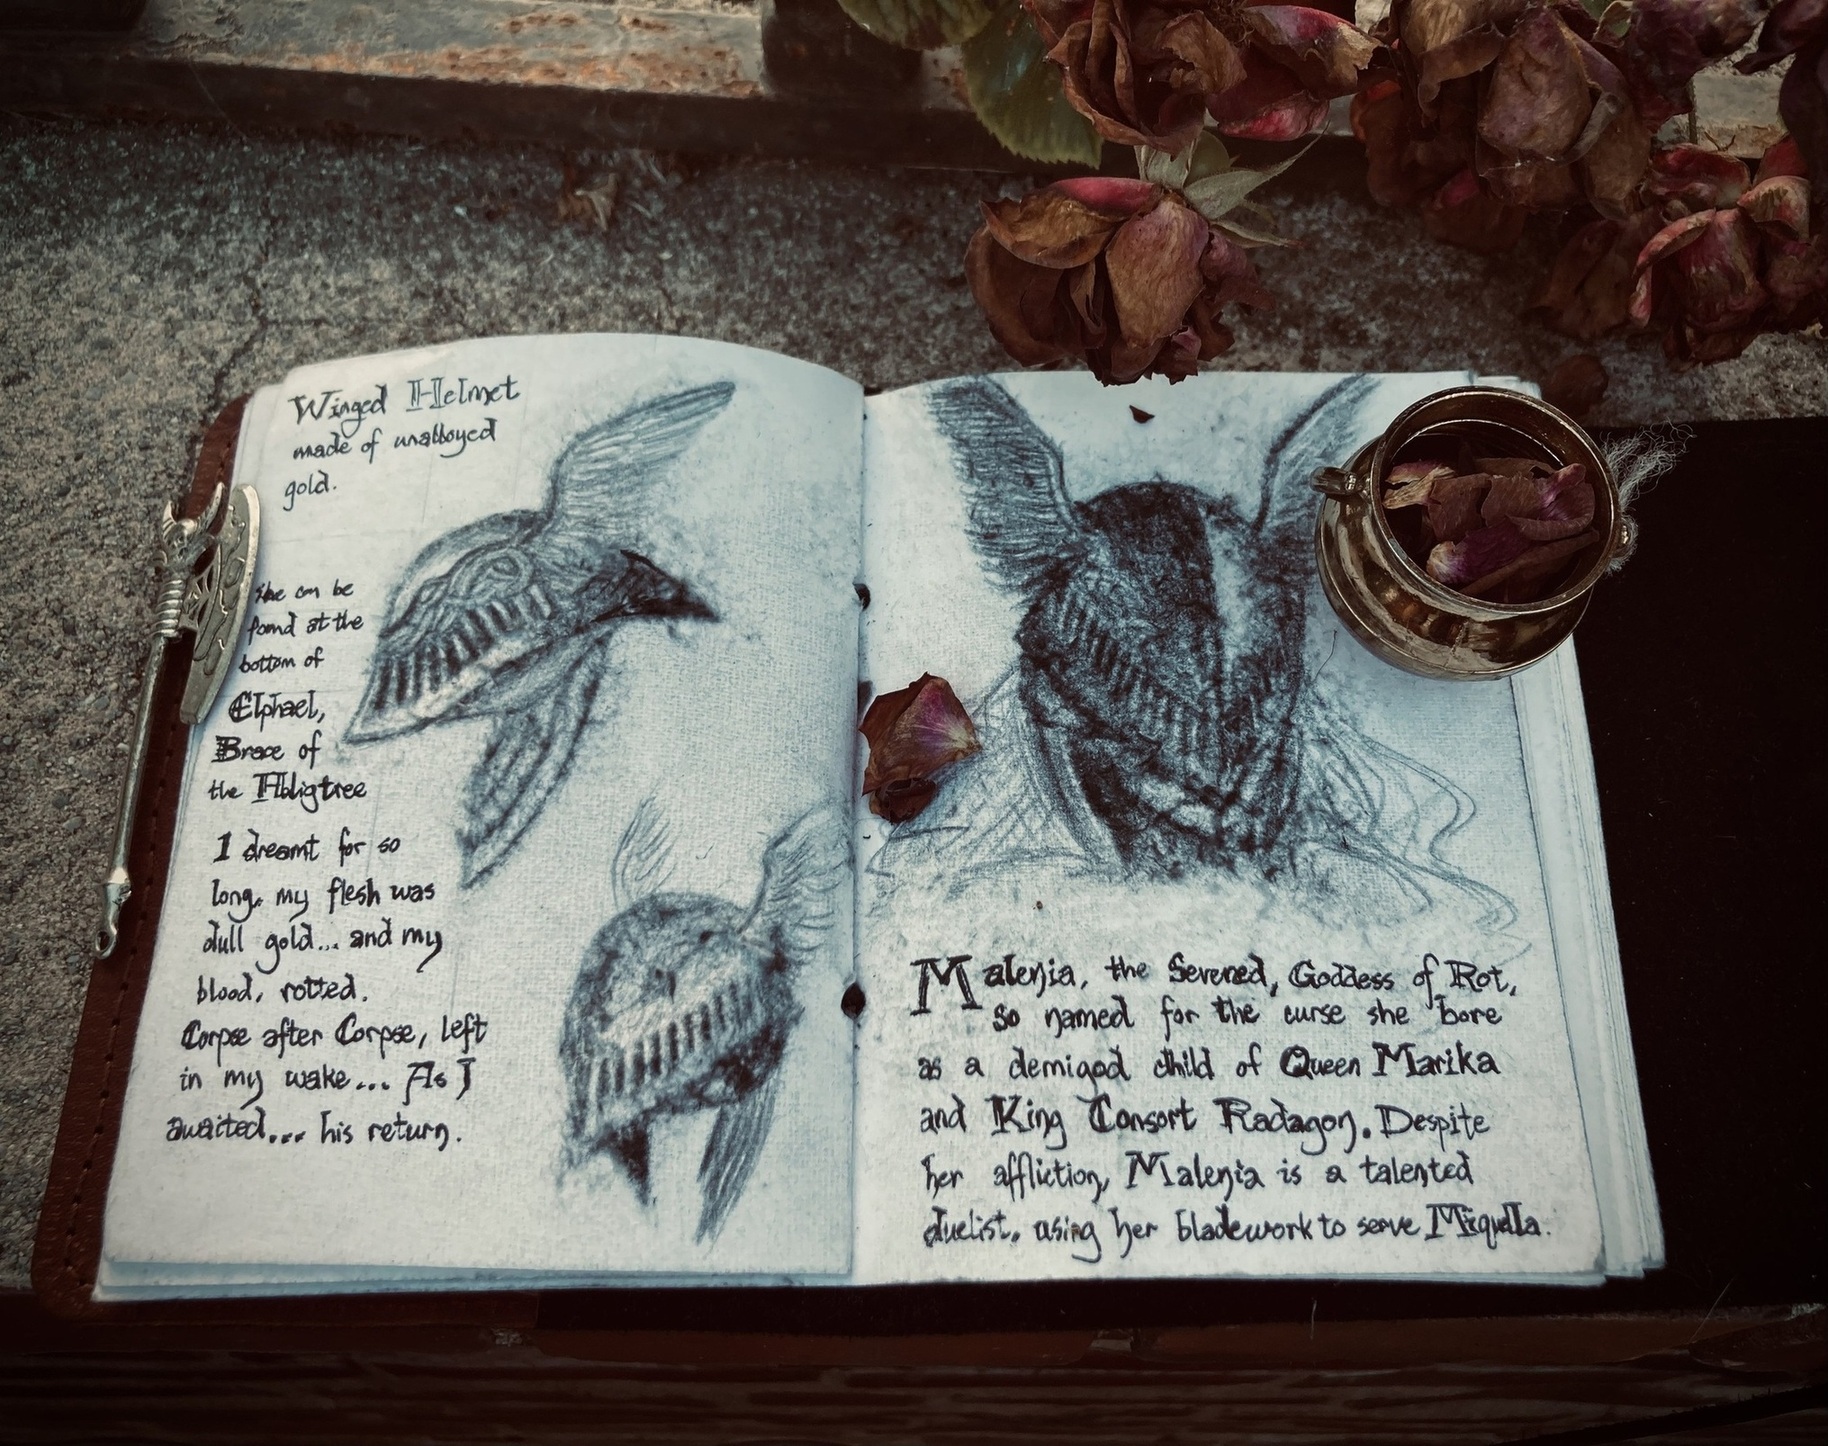 Winged Helmet
made of unalloyed
gold.
She can be
found at the
bottom of
Elphael,
Brace of
the Haligtree
I dreamt for so
long. my flesh was
dull gold... and my
blood, rotted.
Corpse after Corpse, left
in my wake... As I
awaited... his return.
Malenia, the Severed, Goddess of Rot,
so named for the curse she bore
as a demigod child of Queen Marika
and King Consort Radagon. Despite
her affliction, Malenia is a talented
duelist. using her bladework to serve Miquella.